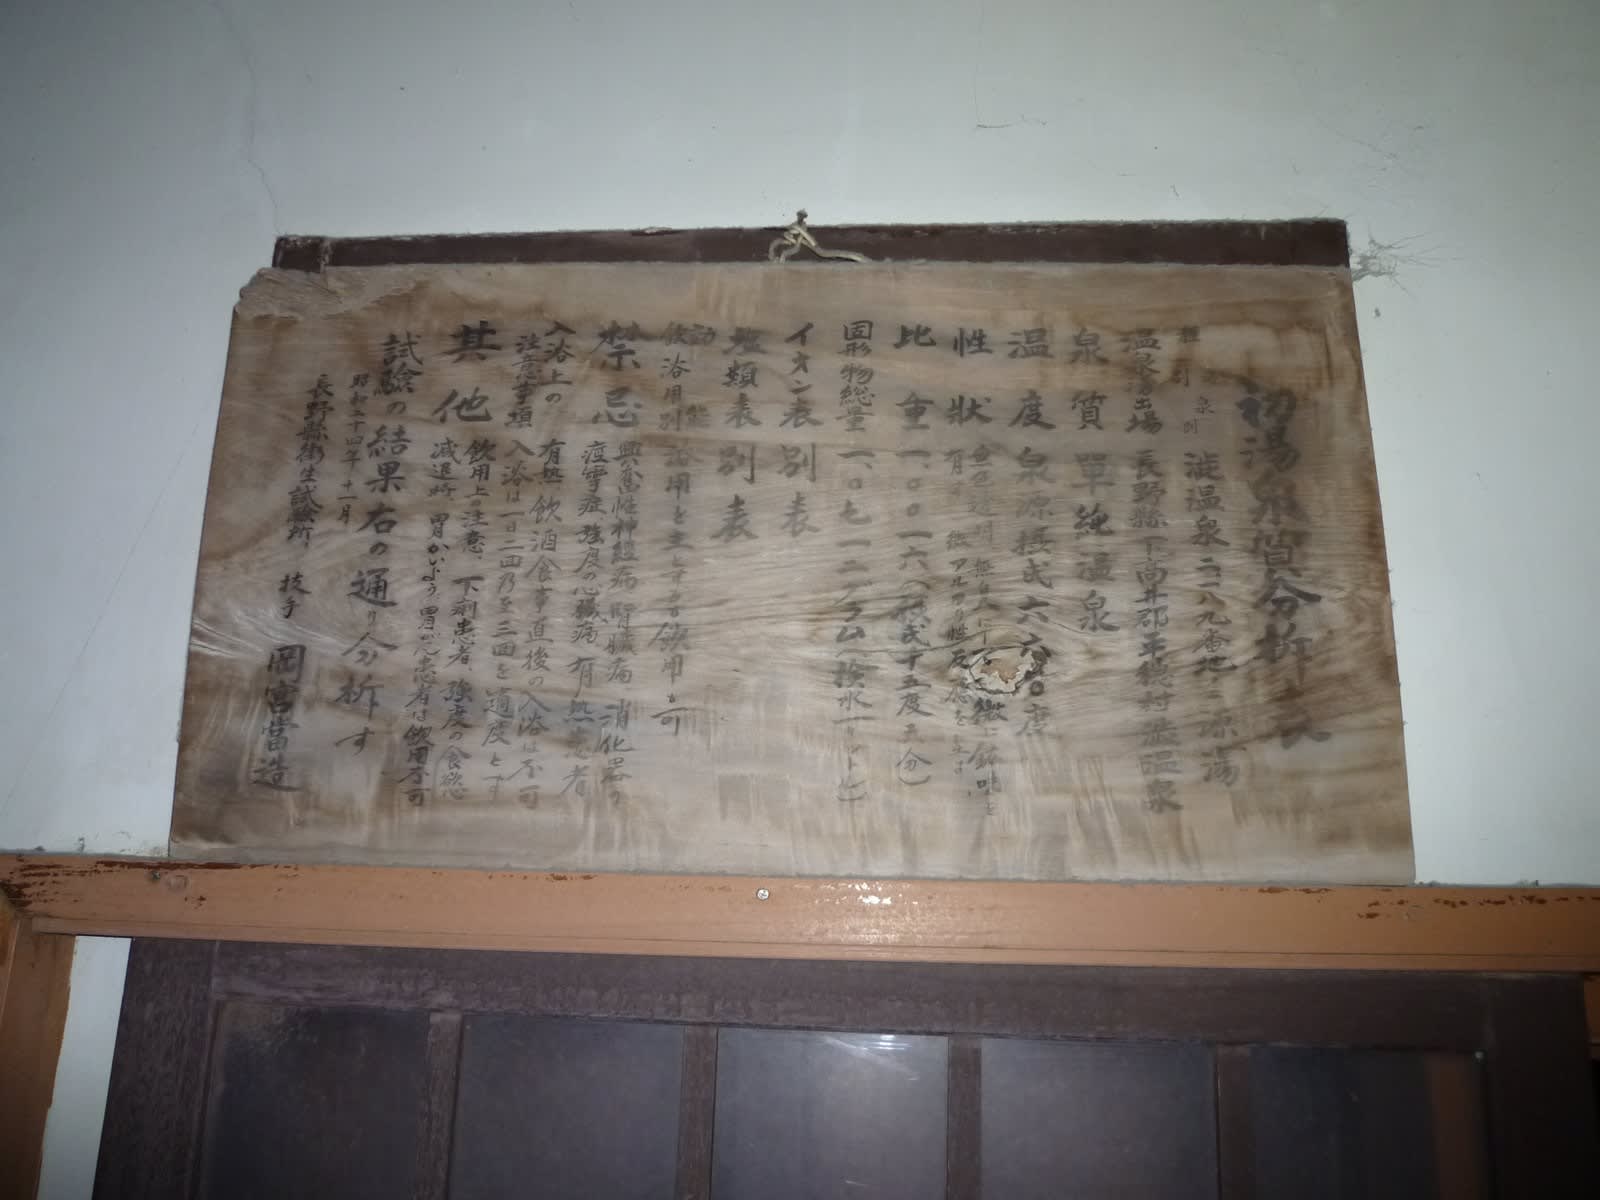 初湯泉質分析
泉別 澁温泉二二八九番地ノ二 初湯
温泉湧出場 長野縣下高井郡平穏村澁温泉
泉質 單純温泉
温度 泉源摂氏六六.〇度
性状 無色透明 無臭ニシテ 微ニ鉱味を
有す 微アルカリ性反應を呈す
比重 一.〇〇一六(摂氏十五度五分)
固形物総量 一.〇七一二グラム(検水一リットル)
イオン表 別表
塩類表 別表
効能
飲浴用別 浴用を主とするも飲用も可
禁忌 興奮性神経病 腎臓病 消化器の
疫 症 強度の心臓病 有熱患者
入浴上の 有熱 飲酒食事直後の入浴は不可
注意事項 入浴は一日二回乃至三回を適度とす
其他 飲用上の注意、下痢患者 強度の食慾
減退時、胃かいよう、胃がん患者は飲用不可
試験の結果右の通り分析す
昭和二十四年十一月
長野縣衛生試験所 技手 岡宮當造